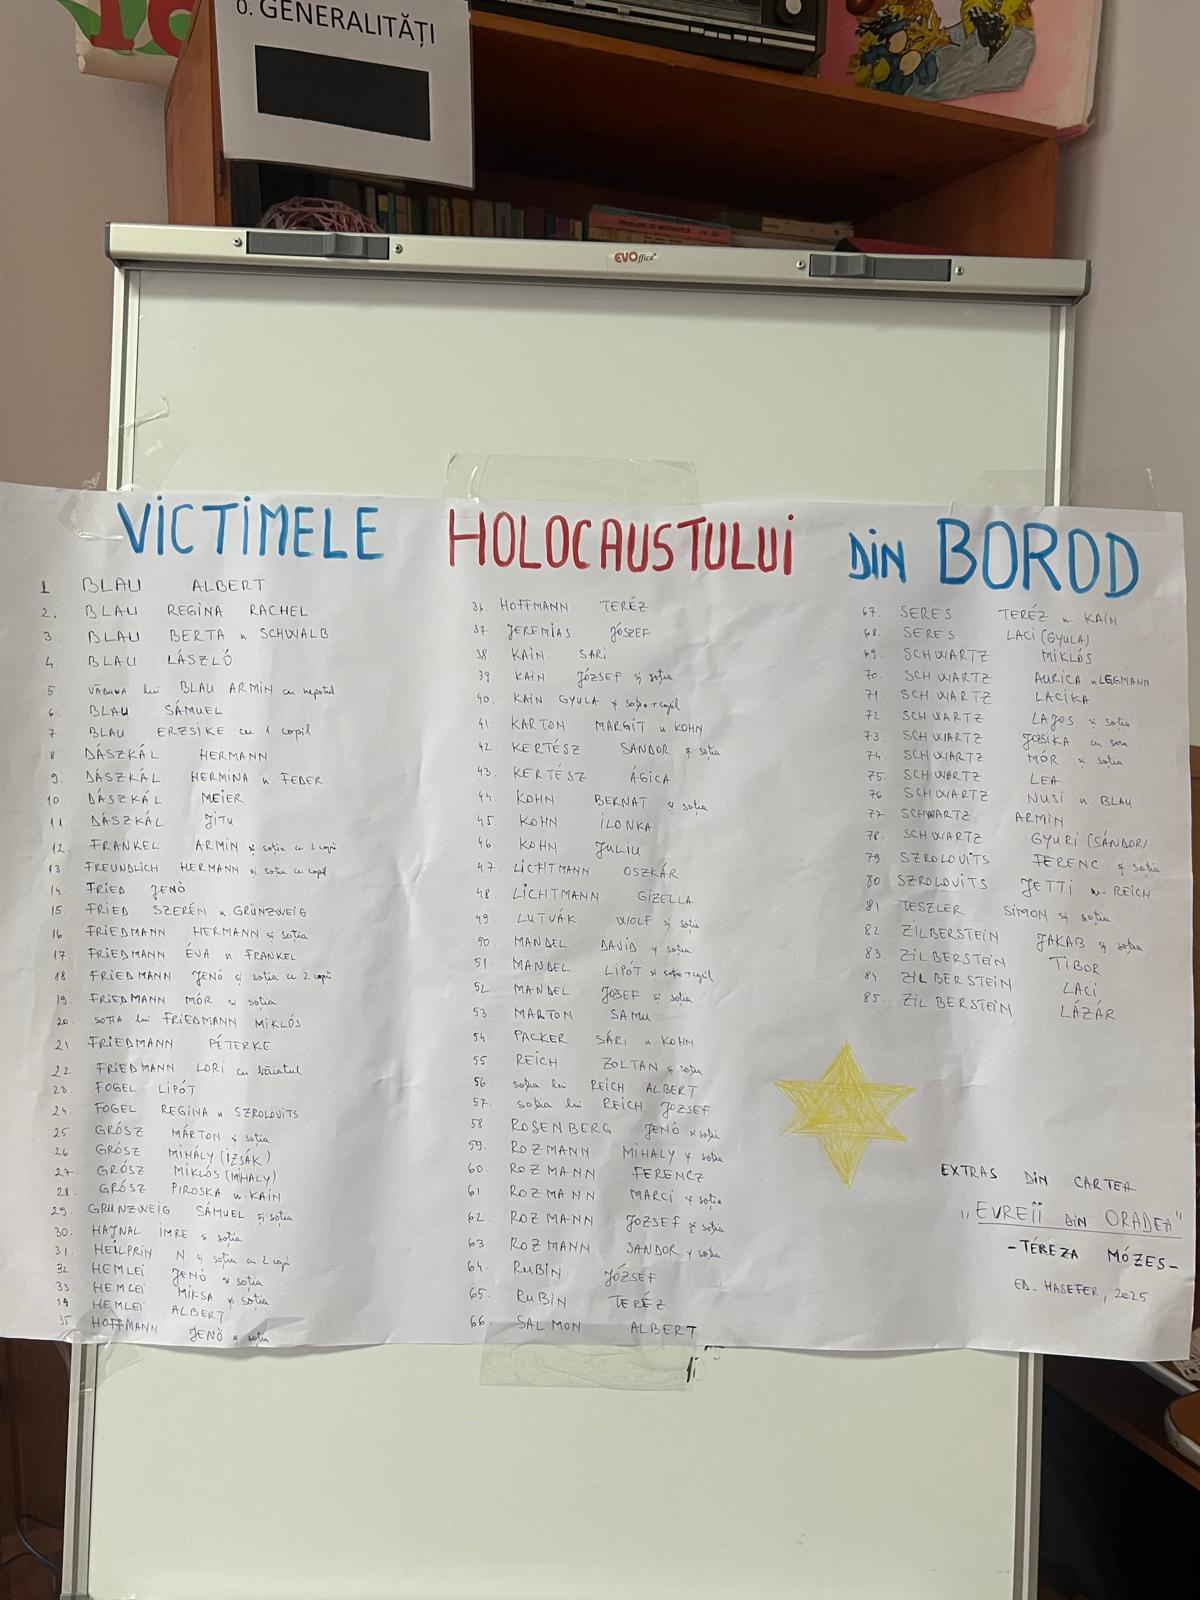 0. GENERALITĂȚI
EVOffice
VICTIMELE HOLOCAUSTULUI DIN BOROD
1 BLAU ALBERT
2. BLAU REGINA RACHEL
3. BLAU BERTA n. SCHWALB
4. BLAU LÁSZLÓ
5 văduva lui BLAU ARMIN cu nepotul
6. BLAU SÁMUEL
7 BLAU ERZSIKE cu 1 copil
8. DÁSZKÁL HERMANN
9. DÁSZKÁL HERMINA n. FEDER
10. DÁSZKÁL MEIER
11. DÁSZKÁL JITU
12. FRANKEL ARMIN și soție cu 2 copii
13. FREUNDLICH HERMANN și soția cu copil
14. FRIED JENÖ
15. FRIED SZERÉN n GRÜNZWEIG
16 FRIEDMANN HERMANN și soția
17 FRIEDMANN ÉVA n. FRANKEL
18 FRIEDMANN JENÖ și soția cu 2 copii
19. FRIEDMANN MÓR și soția
20. soția lui FRIEDMANN MIKLÓS
21 FRIEDMANN PÉTERKE
22 FRIEDMANN LORI cu băiatul
23. FOGEL LIPÓT
24. FOGEL REGINA n. SZROLOVITS
25 GRÓSZ MÁRTON și soția
26 GRÓSZ MIHÁLY (IZSÁK)
27. GRÓSZ MIKLÓS (MIHALY)
28. GRÓSZ PIROSKA n. KAIN
29. GRUNZWEIG SÁMUEL și soția
30. HAJNAL IMRE și soția
31. HEILPRIN N și soția cu 2 copii
32. HEMLEI JENÖ și soția
33. HEMLEI MIKSA și soția
HEMLEI ALBERT
35. HOFFMANN JENÖ și soția
36. HOFFMANN TERÉZ
37 JEREMIAS JÓSZEF
38. KAIN SARI
39. KAIN JÓZSEF și soția
40. KAIN GYULA și soție + copil
41. KARTON MARGIT n KOHN
42. KERTÉSZ SANDOR și soția
43. KERTÉSZ ÁGICA
44. KOHN BERNAT și soția
45. KOHN ILONKA
46. KOHN JULIU
47. LICHTMANN OSZKÁR
48. LICHTMANN GIZELLA
49 LUTVÁK WOLF și soția
50. MANDEL DAVID și soția
51. MANDEL LIPÓT și soție + copil
52. MANDEL JOZSEF și soția
53. MARTON SAMU
54. PACKER SÁRI n KOHN
55 REICH ZOLTAN și soția
56. soția lui REICH ALBERT
57. soția lui REICH JOZSEF
58 ROSENBERG JENÖ și soția
59. ROZMANN MIHALY și soția
60. ROZMANN FERENCZ
61 ROZMANN MARCI și soția
62. ROZMANN JOZSEF și soția
63 ROZMANN SANDOR și soția
64. RUBIN JÓZSEF
65. RUBIN TERÉZ
66. SALMON ALBERT
67. SERES TERÉZ n. KAIN
68. SERES LACI (GYULA)
69. SCHWARTZ MIKLÓS
70. SCHWARTZ AURICA n LEGMANN
71. SCHWARTZ LACIKA
72 SCHWARTZ LAJOS și soția
73. SCHWARTZ JOZSIKA cu sora
74. SCHWARTZ MÓR și soția
75. SCHWARTZ LEA
76 SCHWARTZ NUSI n. BLAU
77 SCHWARTZ ARMIN
78. SCHWARTZ GYURI (SÁNDOR)
79 SZROLOVITS FERENC și soția
80 SZROLOVITS JETTI n REICH
81. TESZLER SIMON și soția
82. ZILBERSTEIN JAKAB și soția
83 ZILBERSTEIN TIBOR
84. ZILBERSTEIN LACI
85. ZILBERSTEIN LÁZÁR
EXTRAS DIN CARTEA
"EVREII DIN ORADEA"
- TEREZA MÓZES -
ED. HASEFER, 2025